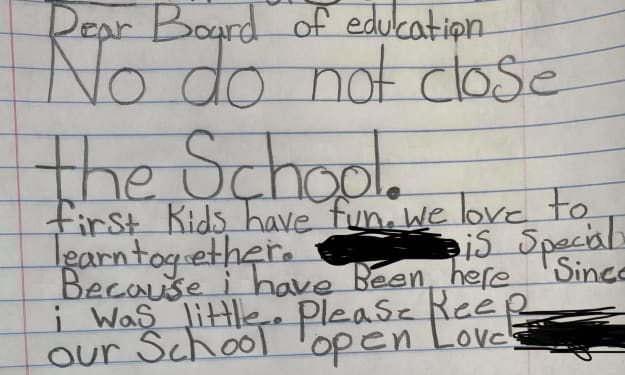 Dear Board of education
No do not close
the School.
first Kids have fun. we love to
learn together. is special
Because i have Been here Since
i was little. Please Keep
our School open Love